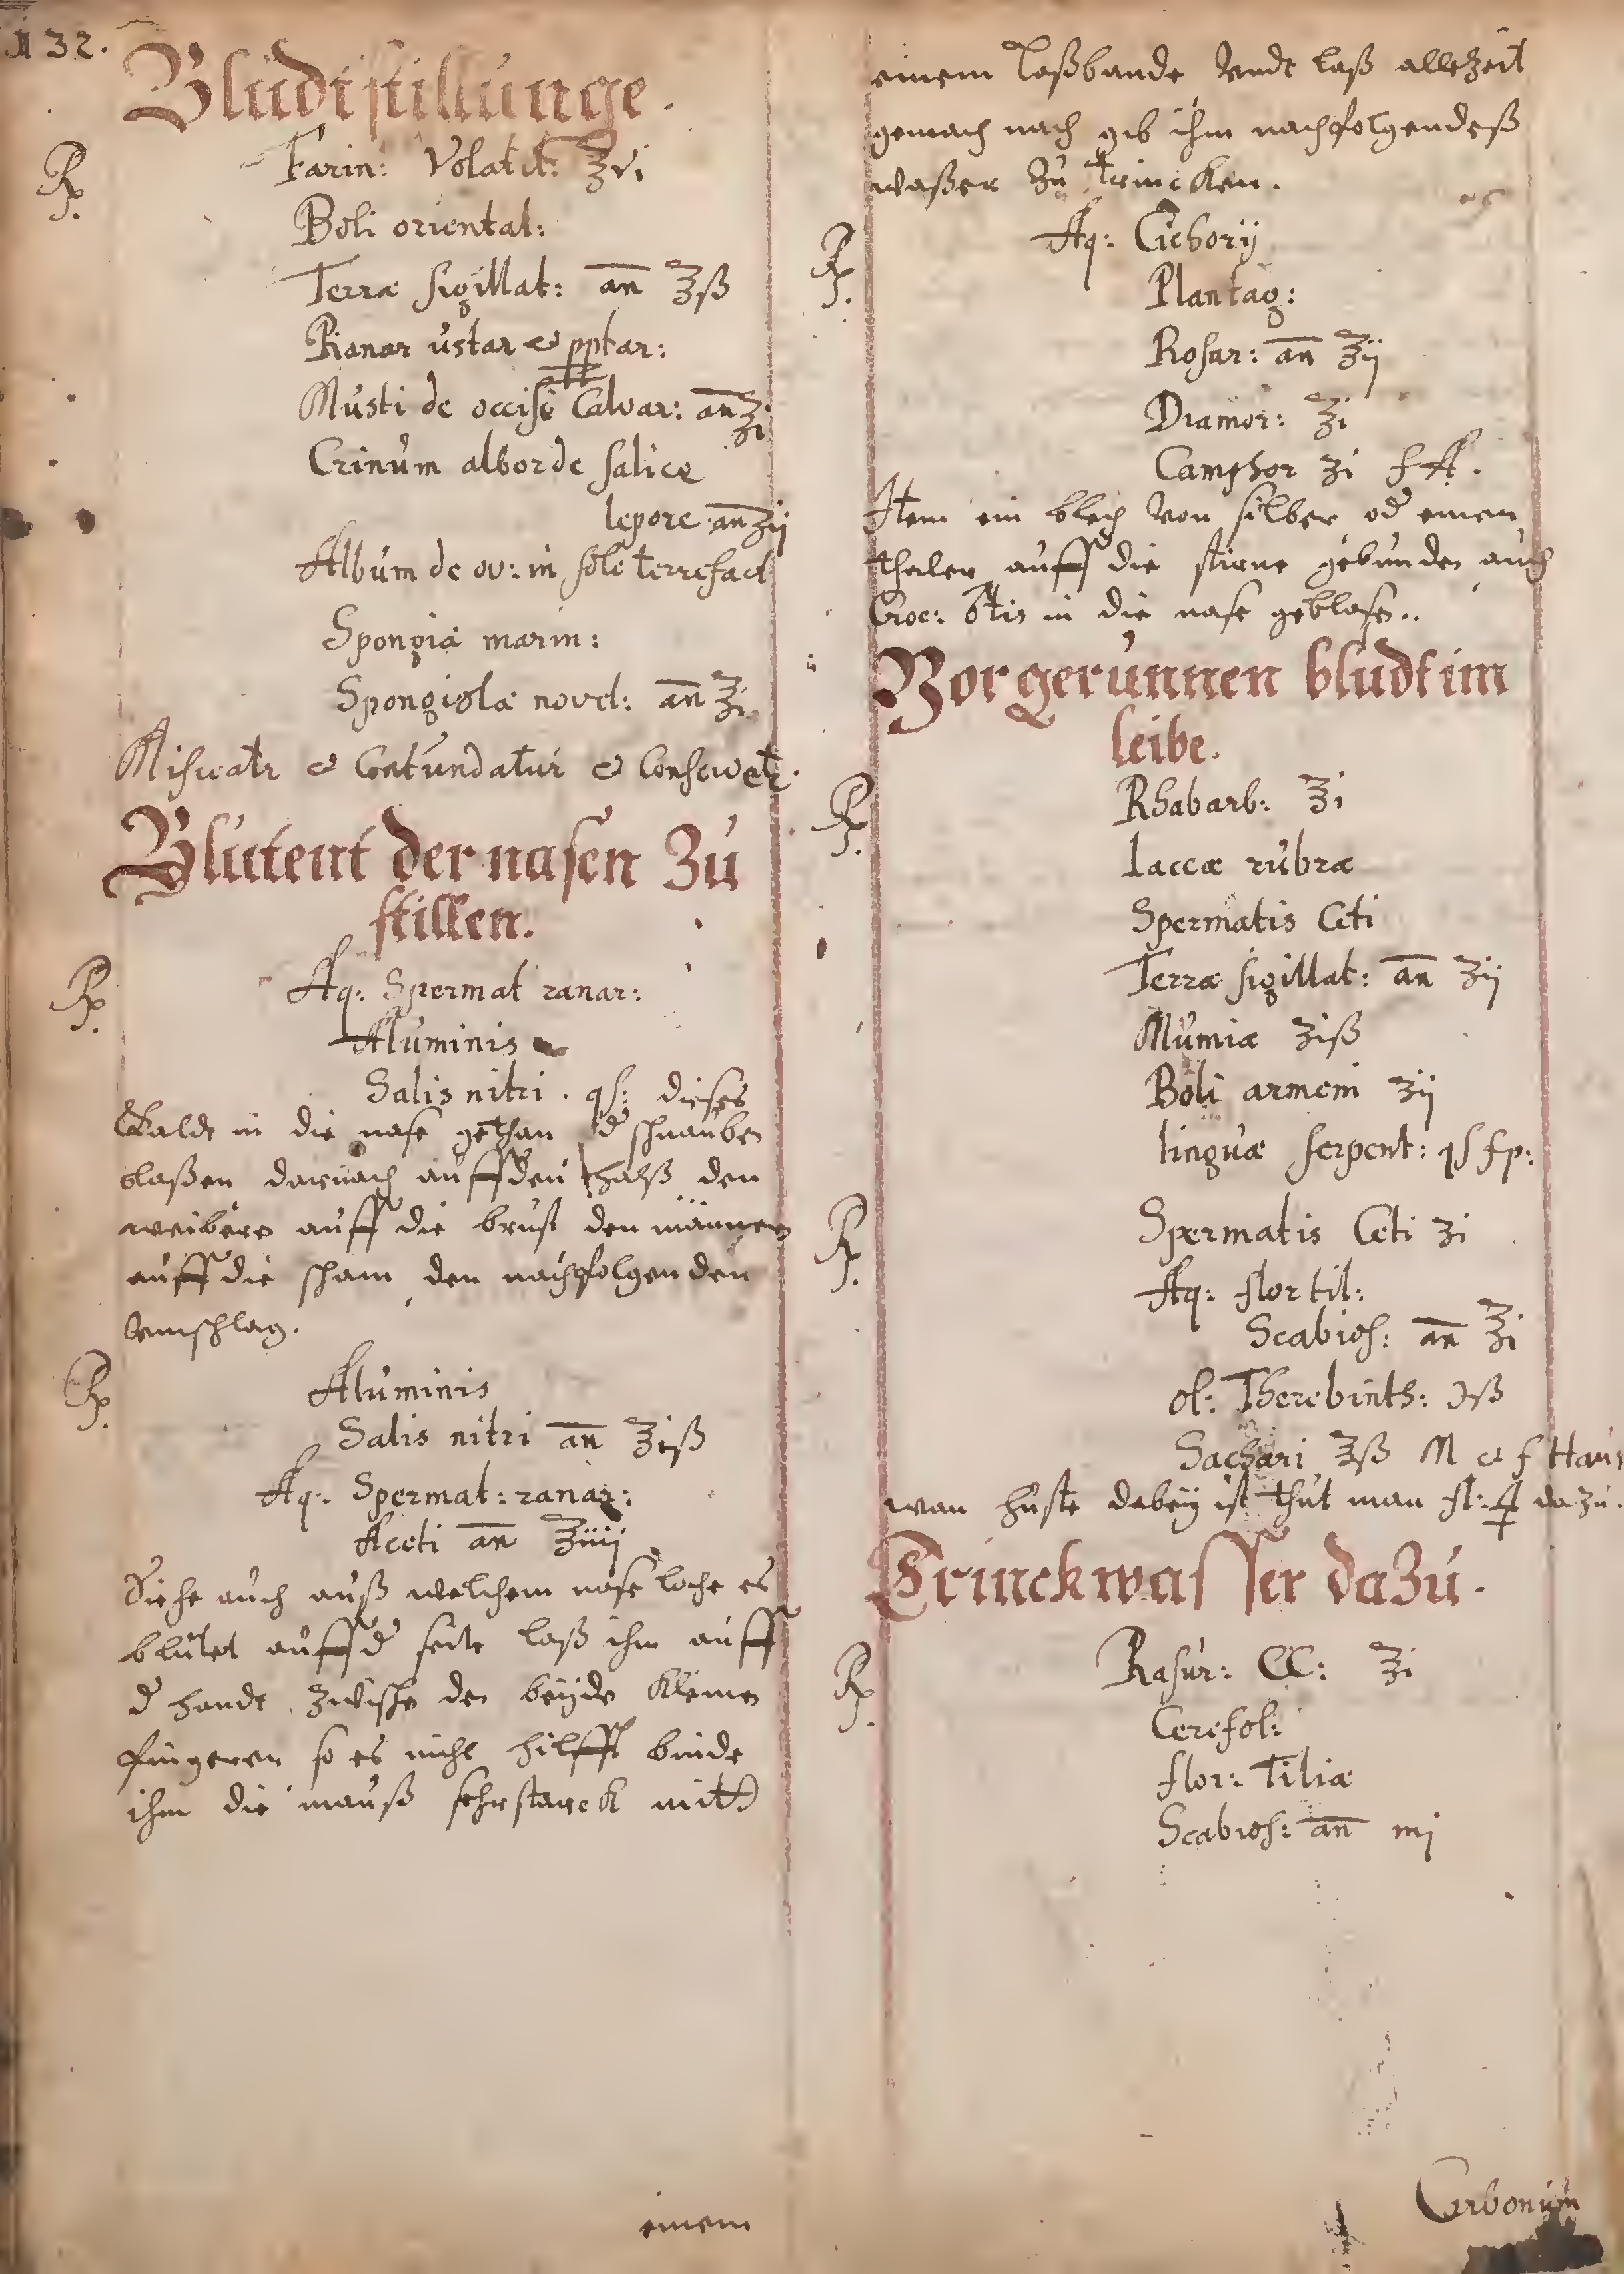 132.
Bludtstillunge.
Rp. Farin: Volatil: ℥vi
Boli oriental:
Terræ sigillat: an ℥ß
Ranar ustar & pptar:
Musci de occisi Calvar: an ℥i
Crinum albor de salice
lepore an ʒij
Album de ov: in sole terrefact
Spongiæ marin:
Spongiolæ novel: an ℥i
Misceatr & Contundatur & Conservetr.
Blutent der nasen Zu
stillen.
Rp. Aq: Spermat ranar:
Aluminis
Salis nitri. qs: dieses
Baldt in die nase gethan d schnauben
laßen darnach auff den halß den
weibern auff die brust den männen
auff die scham den nachfolgenden
vmschlag.
Rp. Aluminis
Salis nitri an ℥ijß
Aq: Spermat: ranar:
Aceti an ℥iiij
Siehe auch auß welchem nase loche es
blutet auff d seite laß ihm auff
d handt zwische den beyde kleinen
fingeren so es nicht hilfft binde
ihm die mauß sehr starck mitt
einem
einem Laßbande vndt laß allezeit
gemach nach gib ihm nachfolgendeß
waßer zu trincken.
Rp. Aq: Cichorij
Plantag:
Rosar: an ℥ij
Diamor: ℥i
Camphor ʒi f A.
Item ein blech von silber od einen
thaler auff die stirne gebunden auch
Croc: ♂tis in die nase geblasen..
Vor gerunnen bludt im
leibe.
Rp. Rhabarb: ℥i
laccæ rubræ
Spermatis Ceti
Terræ sigillat: an ʒij
Mumiæ ʒiß
Boli armeni ʒij
linguæ serpent: qs fp:
Rp. Spermatis Ceti ʒi
Aq: flor til:
Scabios: an ℥i
ol: Therebinth: ℈ß
Sachari ℥ß M & f Haus
wan huste dabey ist thut man fl: 🜍 dazu.
Trinckwasser daZu.
Rp. Rasur: CC: ℥i
Cerefol:
flor: Tiliæ
Scabios: an mj
Carbonum